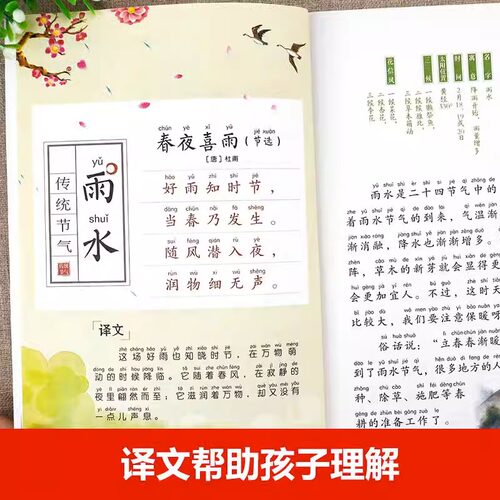 yǔ
雨
shuǐ
水
传统节气
chūn yè xǐ yǔ jié xuǎn
春夜喜雨(节选)
[唐]杜甫
hǎo yǔ zhī shí jié
好雨知时节，
dāng chūn nǎi fā shēng
当春乃发生。
suí fēng qián rù yè
随风潜入夜，
rùn wù xì wú shēng
润物细无声。
译文
这场好雨也知晓时节，在万物萌
动的时候降临。它随着春风，在寂静的
夜里翩然而至；它滋润着万物，却又没有
一点儿声息。
名字
雨水
寓意
降雨开始，雨量增多
时间
2月18、19或20日
太阳位置
黄经330°
三候
一候獭祭鱼
二候鸿雁北
三候草木萌动
花信风
一候菜花，
二候杏花，
三候李花。
雨水是二十四节气中的
着雨水节气的到来，气温渐
渐消融，降水也渐渐增多。
阵，草木的新芽就会显得更
会更加宜人。不过，这时天
比较大，我们要注意保暖呀
俗话说，“立春春渐暖
到了雨水节气，很多地方的人
种、除草、施肥等春
耕的准备工作了。
译文帮助孩子理解